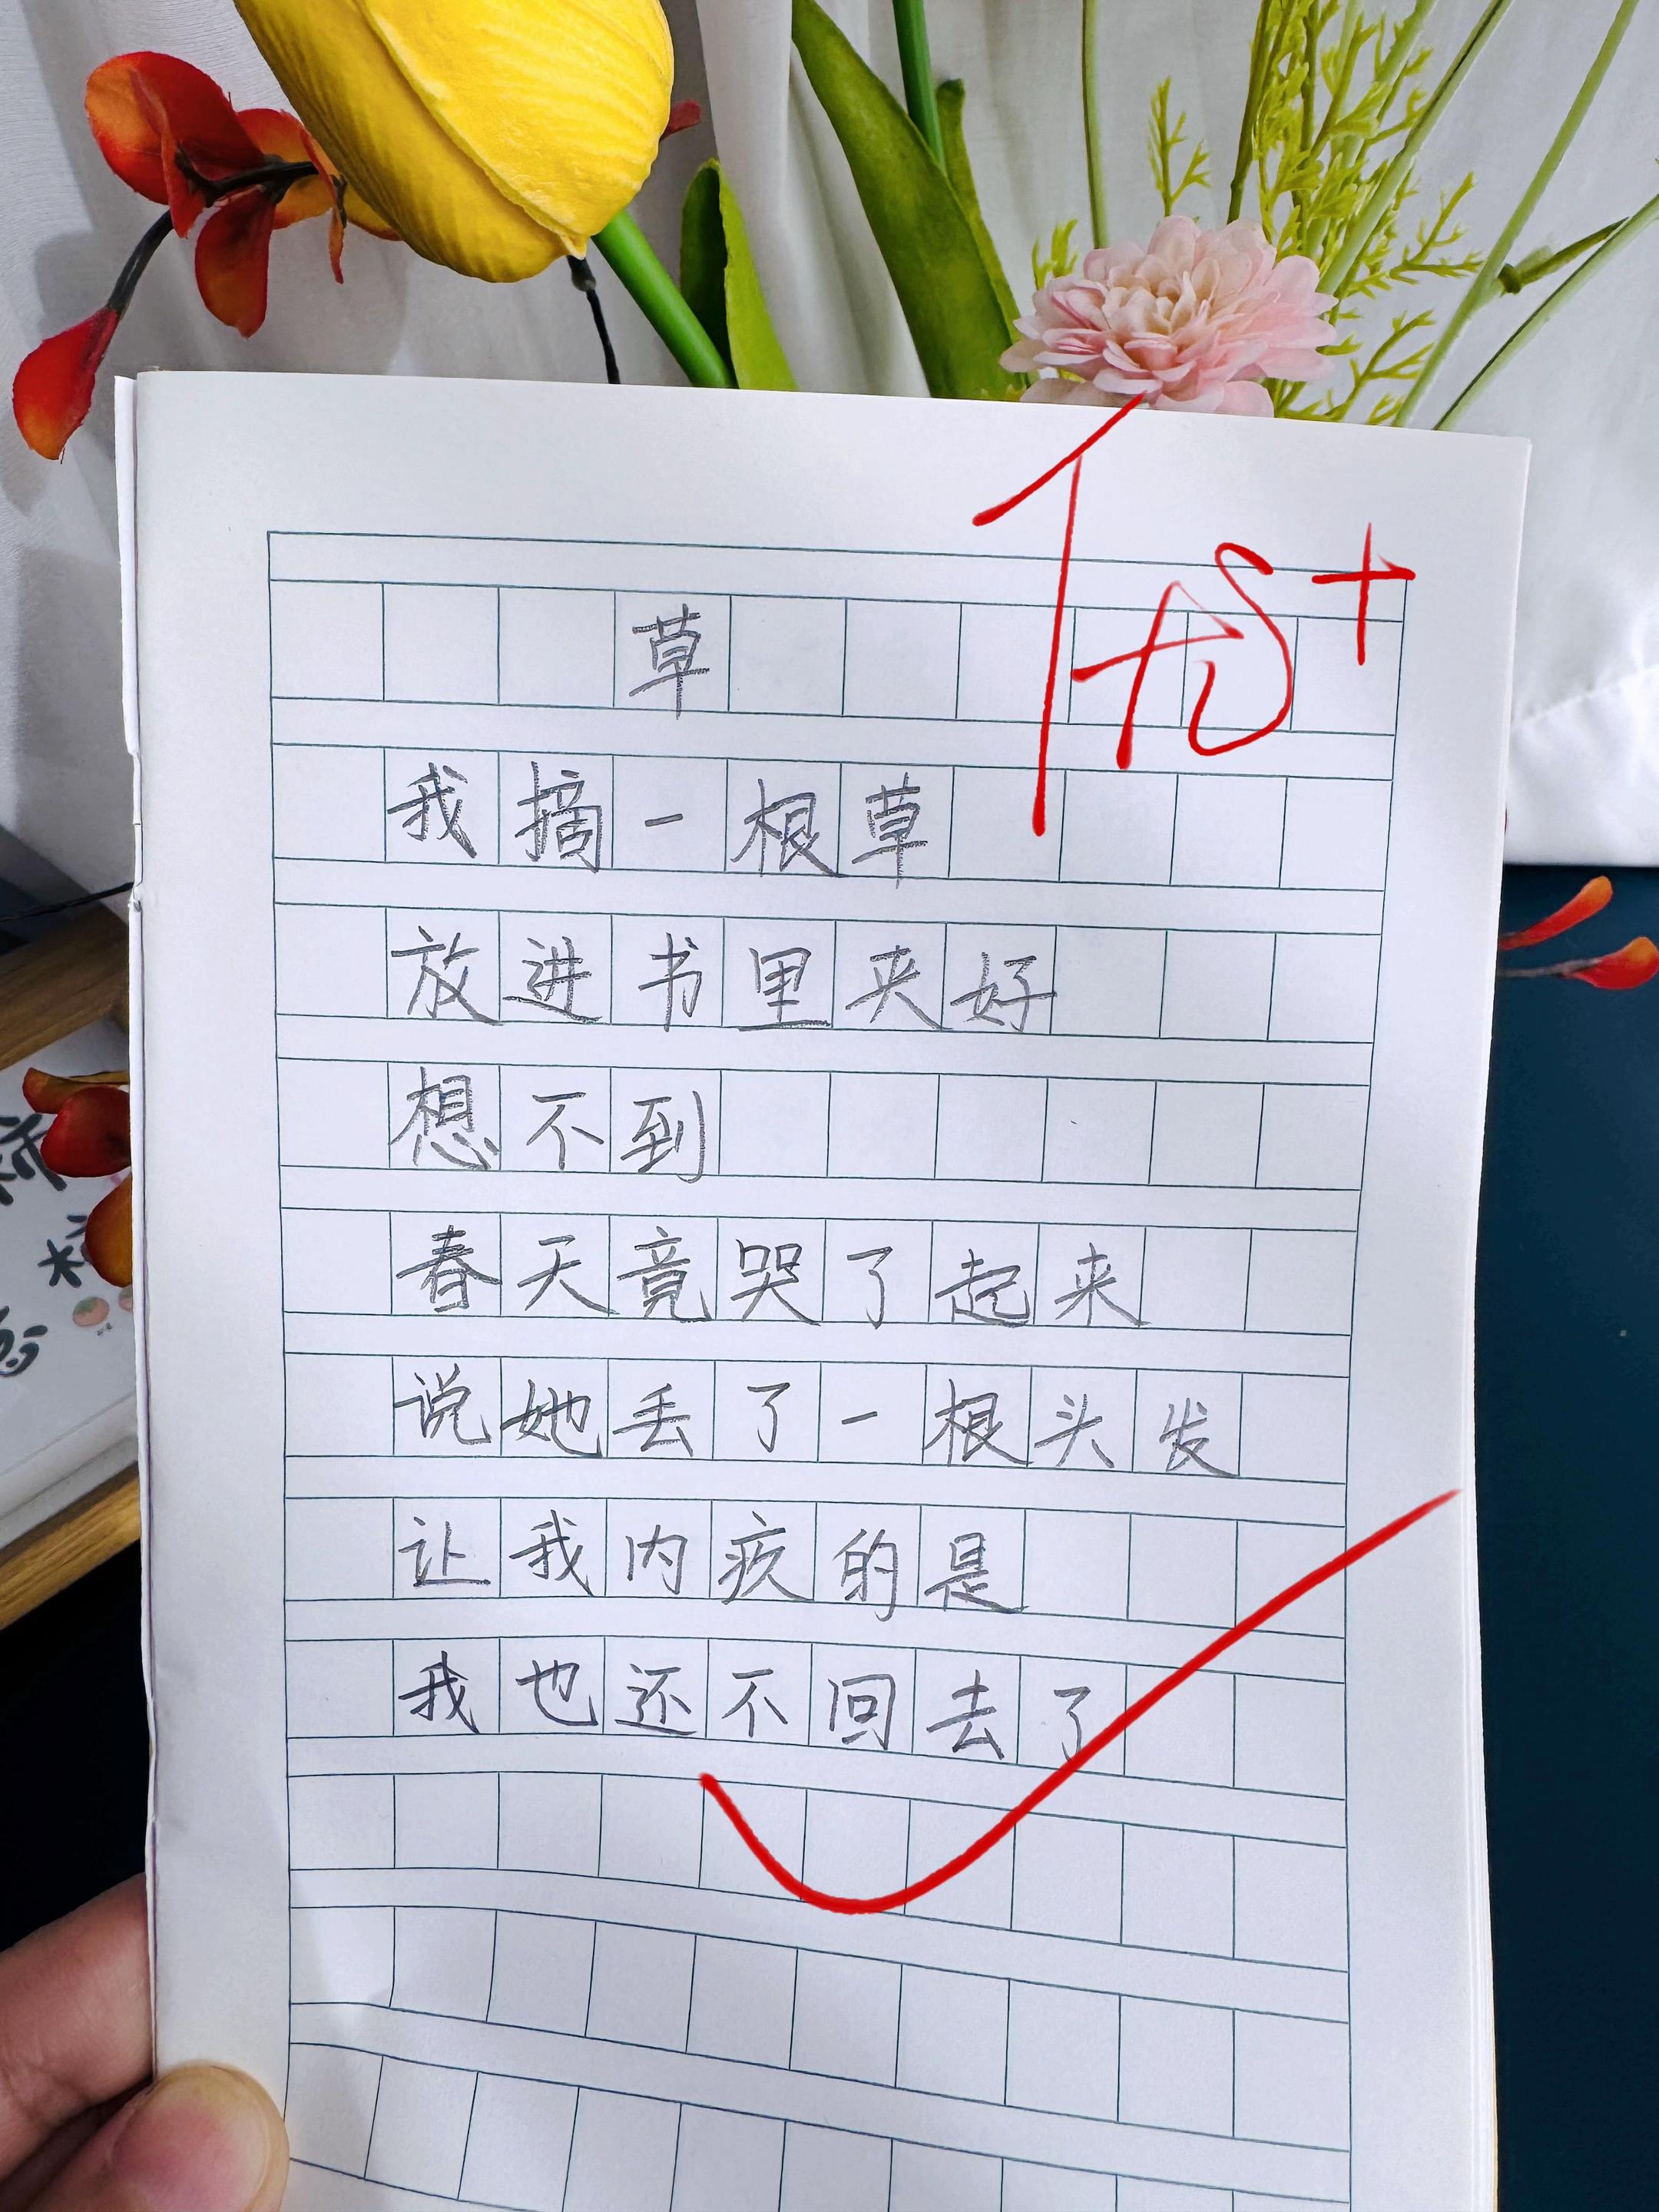 草
我摘一根草
放进书里夹好
想不到
春天竟哭了起来
说她丢了一根头发
让我内疚的是
我也还不回去了
优+